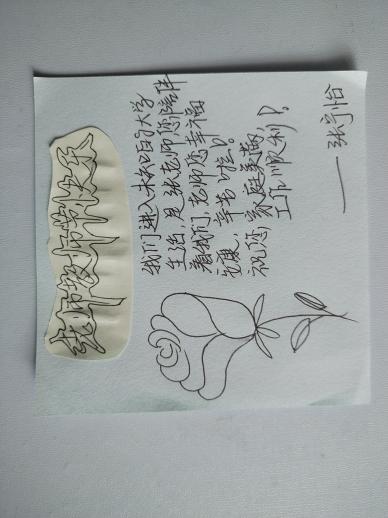 老师教师节快乐
我们进入未知的大学
生活,是张老师您陪伴
着我们,老师您幸福
安康,辛苦啦!
祝您,家庭美满,
工作顺利!
——张宇怡